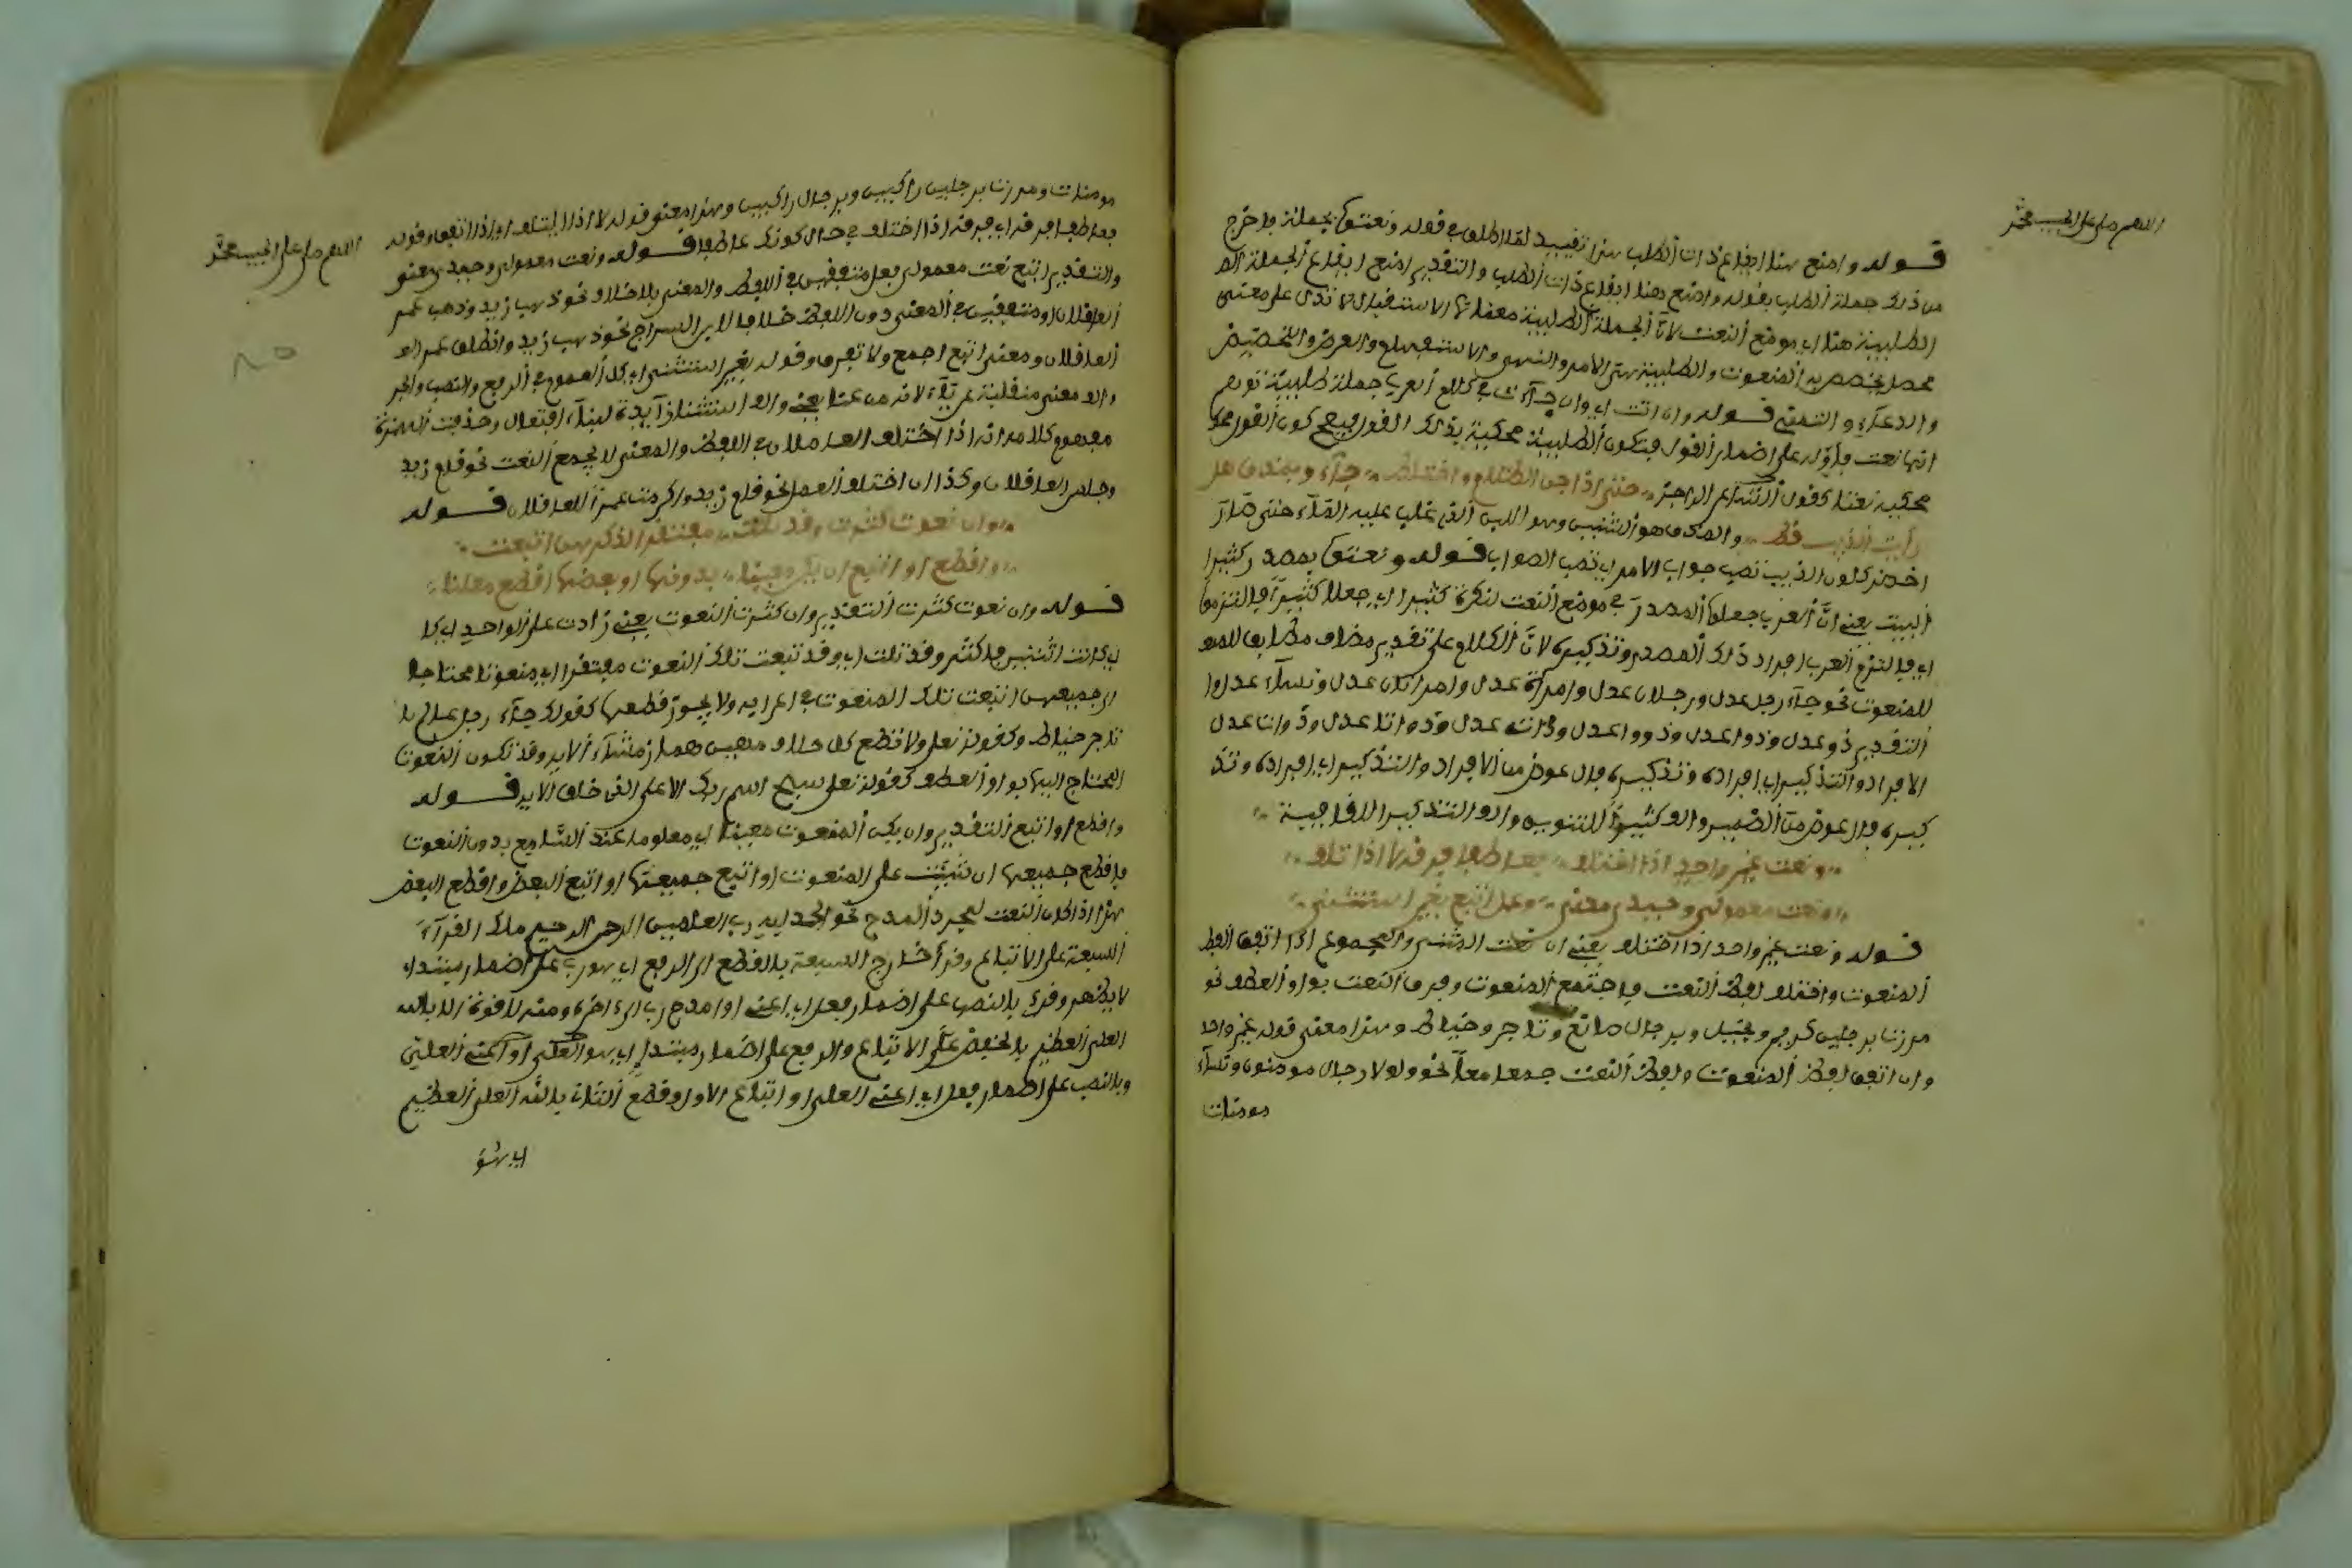 اللهم صل على الحبيب محمد
قوله وامنع هنا ايقاع ذات الطلب هذا تقييد لما اطلق في قوله ونعتوا بجملة فاخرج
من ذلك جملة الطلب بقوله وامنع هنا ايقاع ذات الطلب والتقدير امنع ايقاع الجملة
الطلبية هنا اي موضع النعت لان الجملة الطلبية معناها الاستقبال لا تدل على معنى
محصل يخصص به المنعوت والطلبية هي الامر والنهي والاستفهام والعرض والتخصيص
والدعاء والتمني قوله وان اتت اي وان جاءت في كلام العرب جملة طلبية توهم
انها نعت فاوله على اضمار القول فتكون الطلبية محكية بذلك القول فيصح كون القول
محكيه نعتا كقول الشاعر الراجز حتى اذا جن الظلام واختلط جاءوا بمذق هل
رأيت الذيب قط والمذق هو اللبن الذي غلب عليه الماء حتى صار
اخضر كلون الذيب قوله ونعتوا بمصدر كثيرا
البيت يعني ان العرب جعلوا المصدر في موضع النعت لنكرة كثيرا اي جعلا كثيرا فالتزموا
اي فالتزم العرب افراد ذلك المصدر وتذكيره لان الكلام على تقدير مضاف مطابق
للمنعوت نحو جاء رجل عدل ورجلان عدل وامراة عدل وامراتان عدل ونساء عدل
التقدير ذو عدل وذوا عدل وذووا عدل وذات عدل وذواتا عدل وذوات عدل
الافراد والتذكير اي افراده وتذكيره فال عوض من الافراد والتذكير اي افراده وتذ
كيره فال عوض من الضمير والف كثيرا للتنوين والف التذكيرا للقافية
ونعت غير واحد اذا اختلف فعاطفا فرقه لا اذا ائتلف
ونعت معمولي وحيدي معنى وعمل اتبع بغير استثنى
قوله ونعت غير واحد اذا اختلف يعني ان نعت المثنى والمجموع اذا اتفق لفظ
المنعوت واختلف لفظ النعت فاجتمع المنعوت وفرق النعت بواو العطف نحو
مررت برجلين كريم وبخيل وبرجال صانع وتاجر وخياط وهذا معنى قوله غير واحد
وان اتفق لفظ المنعوت ولفظ النعت جمعا معا نحو ولولا رجال مومنون ونساء
مومنات
اللهم صل على الحبيب محمد
مومنات ومررت برجلين راكبين وبرجال راكبين وهذا معنى قوله لا اذا ائتلف اي اذا اتفق وقوله
فعاطفا فرقه اي فرقه اذا اختلف في حال كونك عاطفا قوله ونعت معمولي وحيدي معنى
والتقدير اتبع نعت معمولي فعل متفقين في اللفظ والمعنى بلا خلاف نحو ذهب زيد وذهب عمر
العاقلان او متفقين في المعنى دون اللفظ خلافا لابن السراج نحو ذهب زيد وانطلق عمر
العاقلان ومعنى اتبع اجمع ولا تفرق وقوله بغير استثنى اي كل العموم في الرفع والنصب والجر
والف معنى منقلبة عن ياء لانه من عنا يعني
مفهوم كلامه انه اذا اختلف العاملان في اللفظ والمعنى لا يجمع النعت نحو قام زيد
وجلس العاقلان وكذا ان اختلف العمل نحو قام زيد واكرمت عمرا العاقلان قوله
وان نعوت كثرت وقد تلت مفتقرا لذكرهن اتبعت
واقطع او اتبع ان يكن معينا بدونها او بعضها اقطع معلنا
قوله وان نعوت كثرت التقدير وان كثرت النعوت يعني زادت على الواحد
كانت اثنين فاكثر وقد تلت اي وقد تبعت تلك النعوت مفتقرا اي منعوتا محتاجا
الى جميعهن اتبعت تلك المنعوت في اعرابه ولا يجوز قطعها كقولك جاء رجل عالم
تاجر خياط وكقوله تعلى ولا تطع كل حلاف مهين هماز مشاء الاية وقد تكون النعوت
المحتاج اليها بواو العطف كقوله تعلى سبح اسم ربك الاعلى الذي خلق الاية قوله
واقطع او اتبع التقدير وان يكن المنعوت معينا اي معلوما عند السامع بدون النعوت
فاقطع جميعها ان شئت على المنعوت او اتبع جميعها او اتبع البعض واقطع البعض
هذا اذا كان النعت لمجرد المدح نحو الحمد لله رب العالمين الرحمن الرحيم ملك القراء
السبعة على الاتباع وقرا خارج السبعة بالقطع الى الرفع اي هو رب على اضمار مبتدا
لا يظهر وقرئ بالنصب على اضمار فعل اي اعني او امدح رب الى اخره ومنه لا قوة الا بالله
العلي العظيم بالخفض على الاتباع والرفع على اضمار مبتدا اي هو العلي او اعني العلي
وبالنصب على اضمار فعل اي اعني العلي او اتباع الاول وقطع الثاني بالله العلي العظيم
اي هو